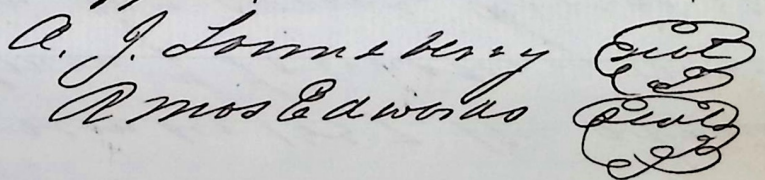 A. J. Lounsberry Seal
Amos Edwards Seal